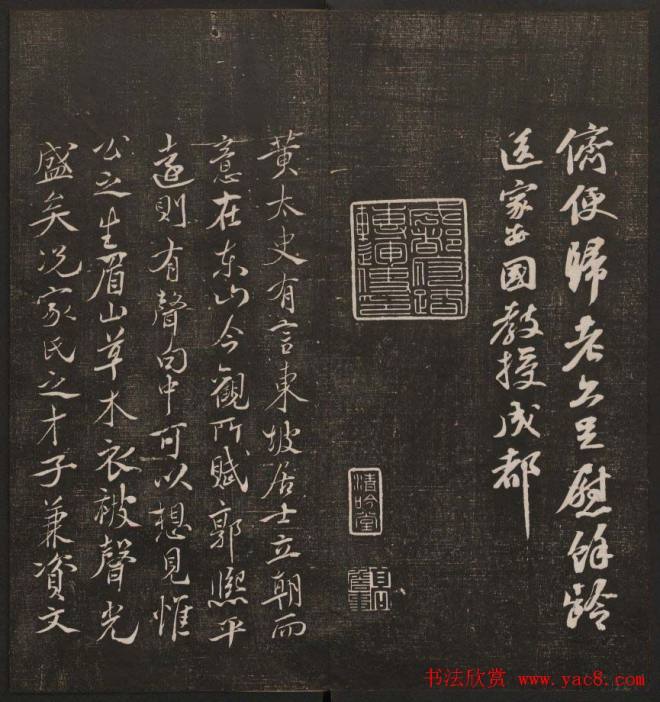 儕便歸老亦足慰餘齡
送家安國教授成都
清吟堂
黃太史有言東坡居士立朝而
意在東山今觀所賦郭熙平
遠則有聲句中可以想見惟
公之生眉山草木衣被聲光
盛矣况家氏之才子兼資文
书法欣赏 www.yac8.com